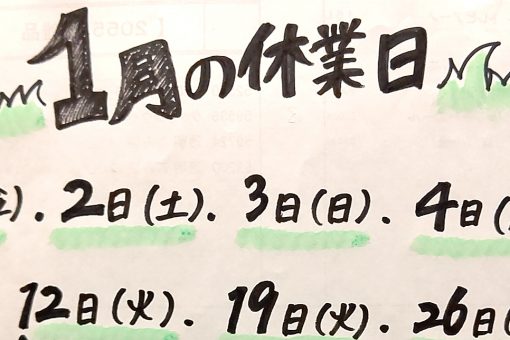 1月の休業日
金)．2日(土)．3日(日)．4日(
12日(火)．19日(火)．26日(